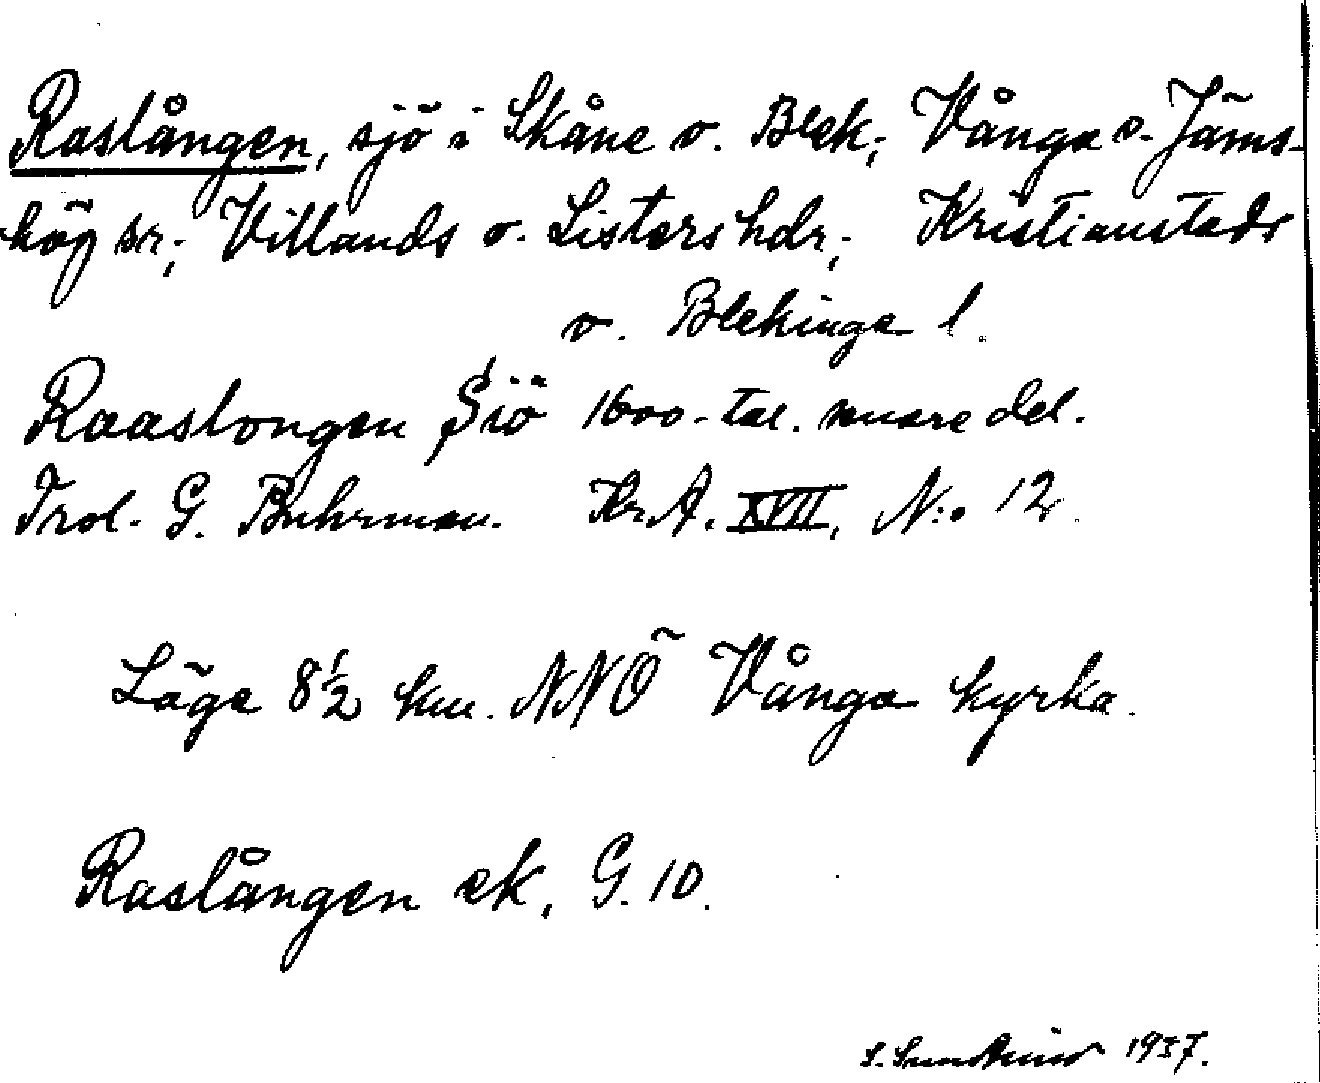 Raslången, sjö i Skåne o. Blek.; Vånga o. Jäms-
hög sr.; Villands o. Listers hdr.; Kristianstads
o. Blekinge l.
Raaslongen Siö 1600-tal. senare del.
Trol. G. Buhrman. Kr.A. XVII, N:o 12.
Läge 8½ km. NNÖ Vånga kyrka.
Raslången ek. G. 10.
1937.